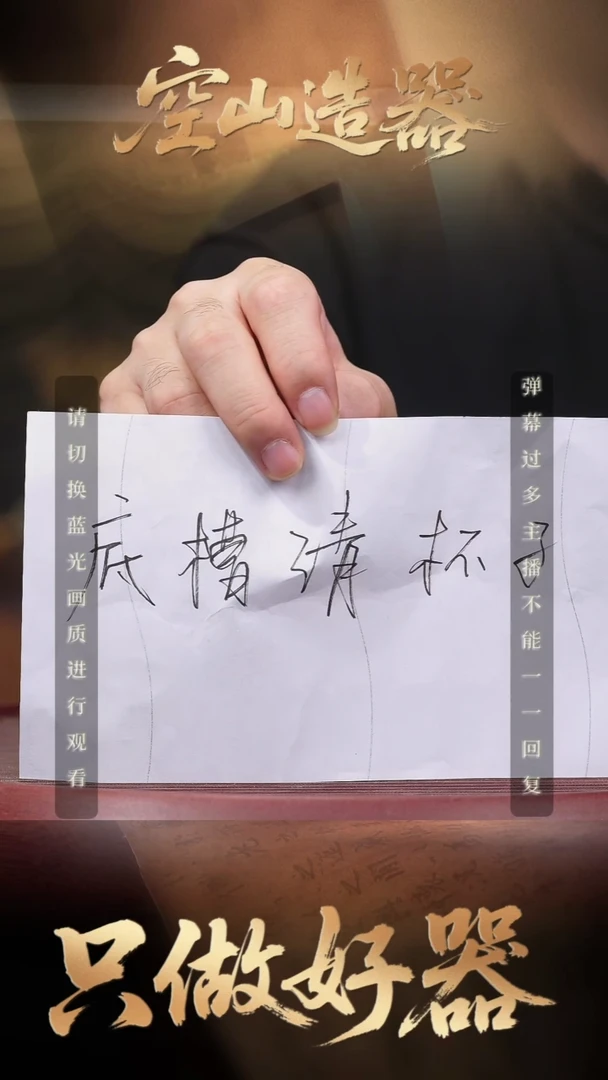 空山造器
请切换蓝光画质进行观看
弹幕过多主播不能一一回复
底槽清杯子
只做好器